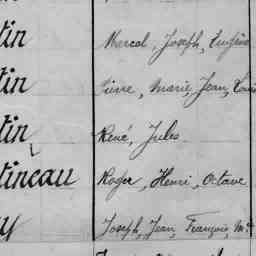 tin Marcel, Joseph, Eugène
tin Pierre, Marie, Jean, Louis
tin René, Jules
tineau Roger, Henri, Octave
y Joseph, Jean, François, M